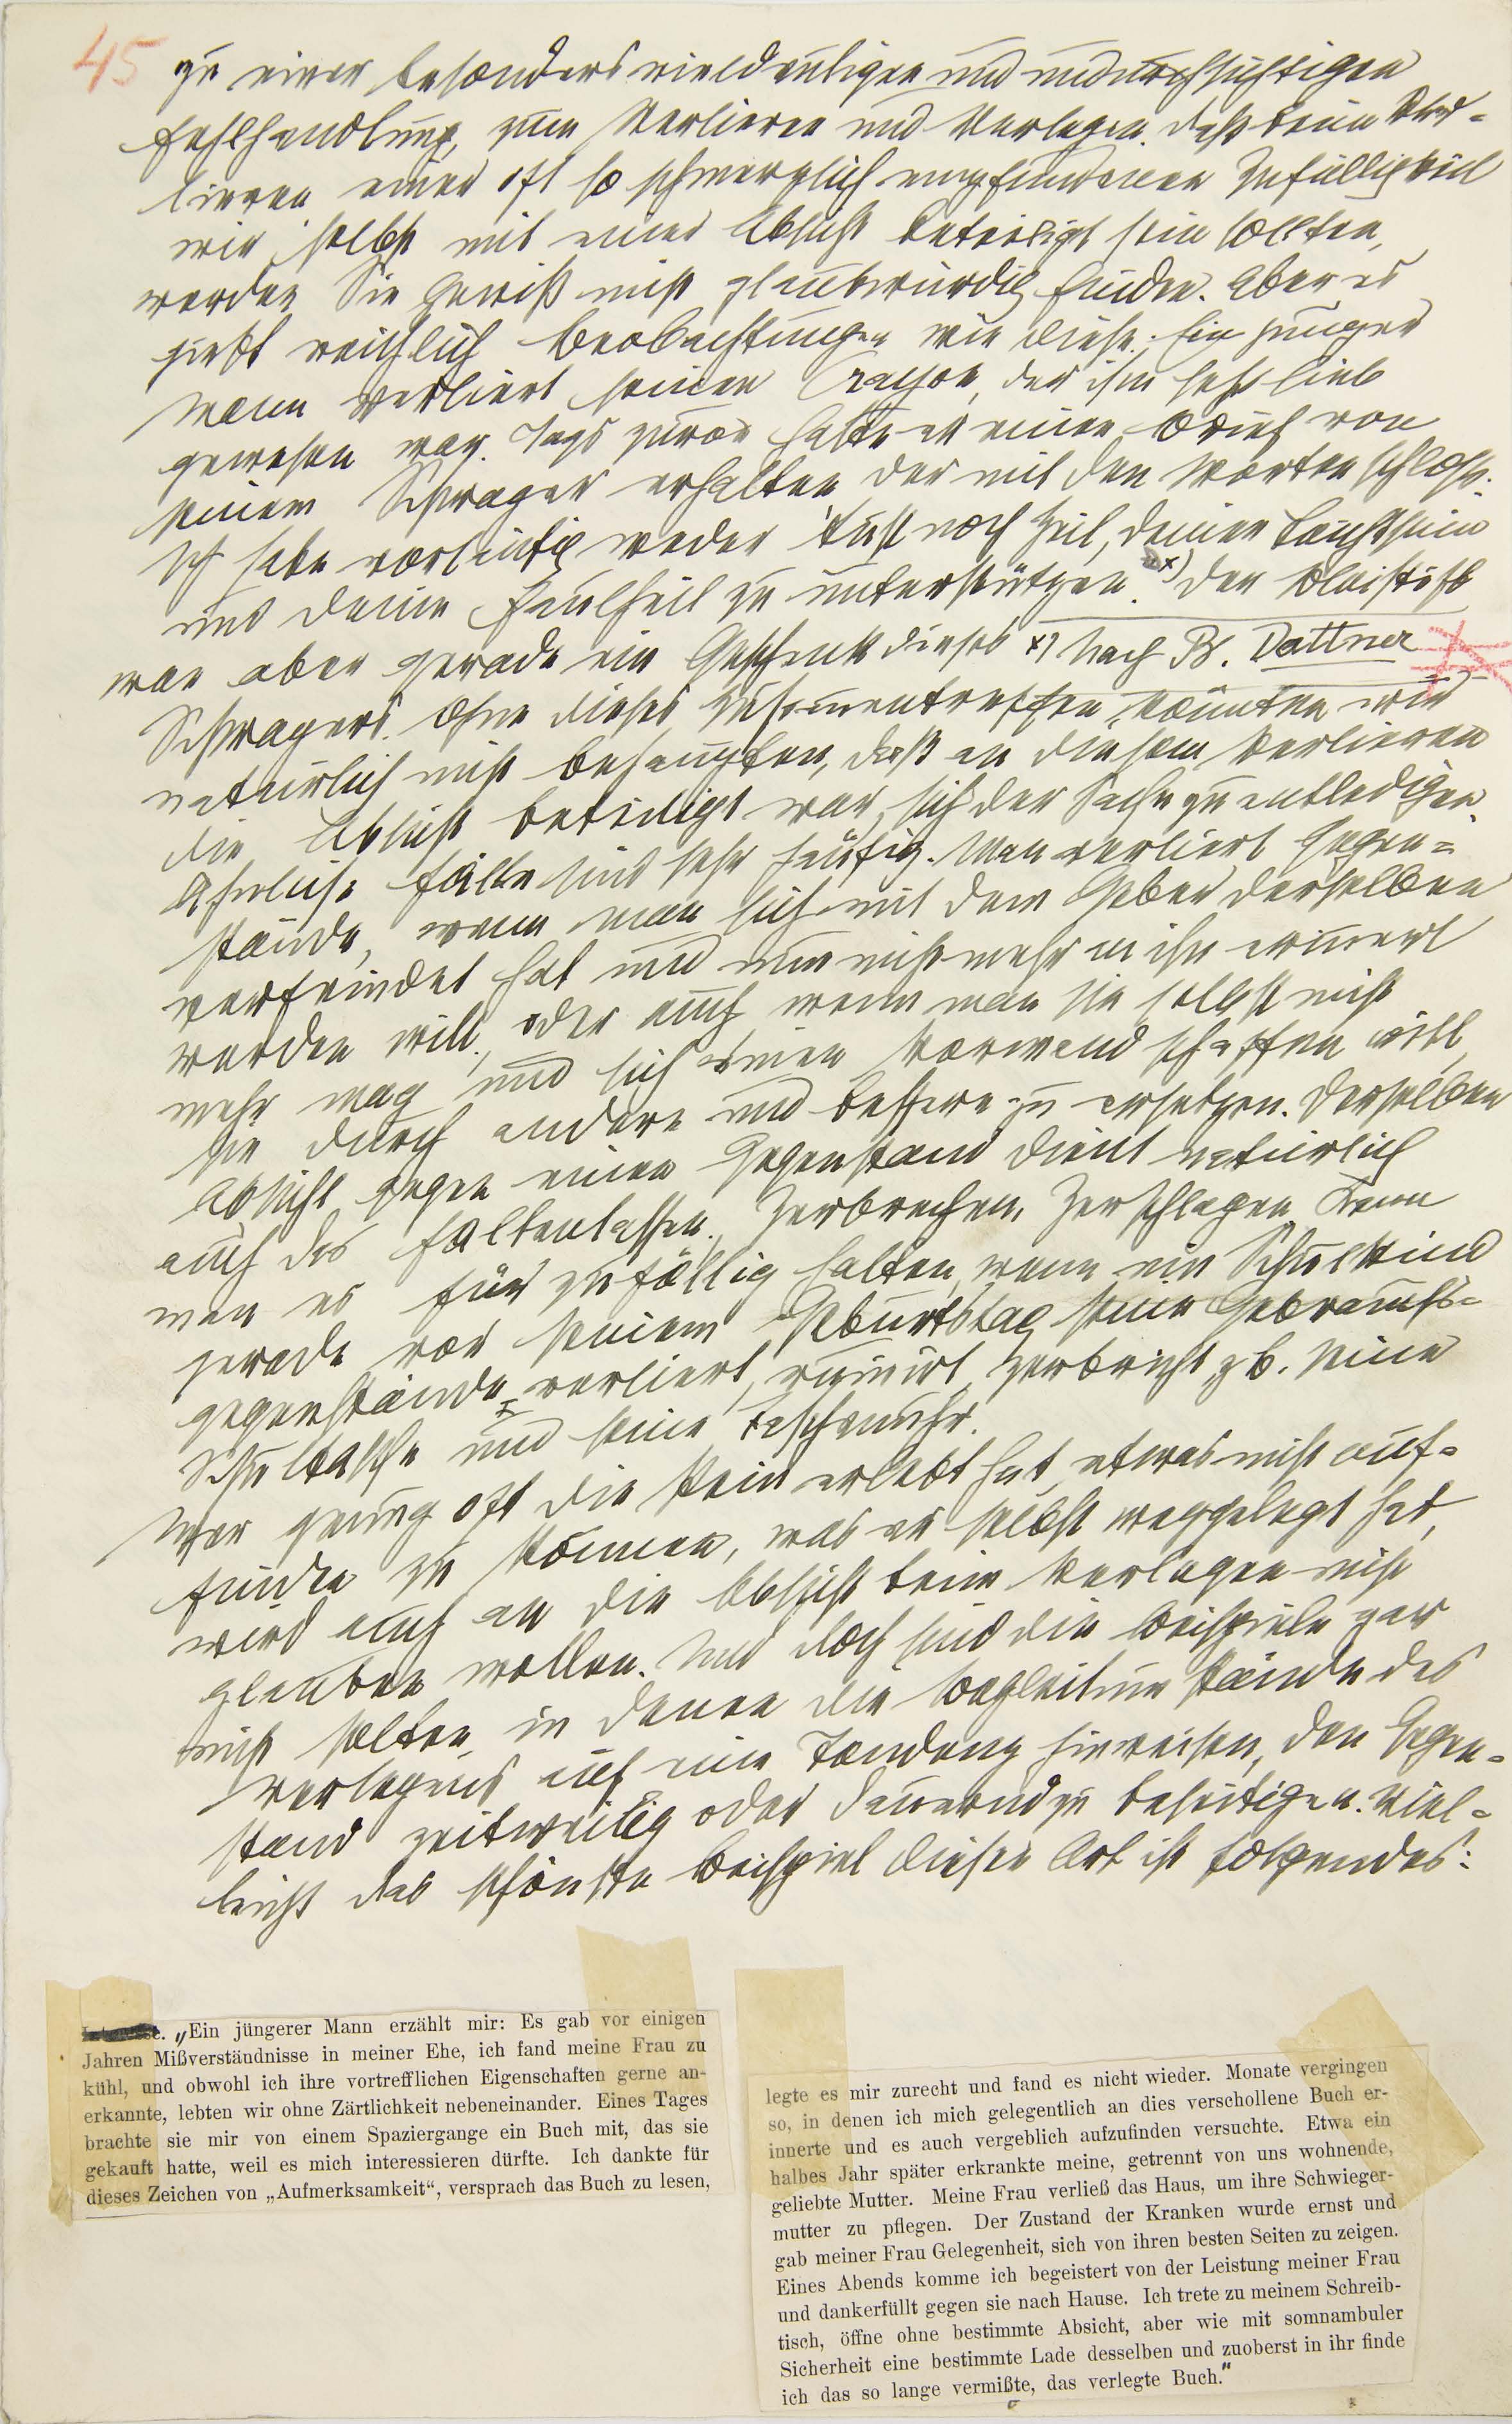 45
zu einer besonders vieldeutigen und undurchsichtigen
Fehlhandlung, zum Verlieren und Verlegen. Daß beim Ver-
lieren einer oft so schmerzlich empfundenen Zufälligkeit
wir selbst mit einer Absicht beteiligt sein sollten,
werden Sie gewiß nicht glaubwürdig finden. Aber es
giebt reichlich Beobachtungen wie diese: Ein junger
Mann verliert seinen Crayon, der ihm sehr lieb
gewesen war. Tags zuvor hatte er einen Brief von
seinem Schwager erhalten, der mit den Worten schloß:
Ich habe vorläufig weder Lust noch Zeit, deinen Leichtsinn
und deine Faulheit zu unterstützen. x) Der Bleistift
war aber gerade ein Geschenk dieses x) Nach B. Dattner
Schwagers. Ohne dieses Zusammentreffen könnten wir
natürlich nicht behaupten, daß an diesem Verlieren
die Absicht beteiligt war, sich der Sache zu entledigen.
Ähnliche Fälle sind sehr häufig. Man verliert Gegen=
stände, wenn man sich mit dem Geber derselben
verfeindet hat und nun nicht mehr an ihn erinnert
werden will, oder auch wenn man sie selbst nicht
mehr mag und sich einen Vorwand schaffen will,
sie durch andere und bessere zu ersetzen. Derselben
Absicht gegen einen Gegenstand dient natürlich
auch das Fallenlassen, Zerbrechen, Zerschlagen. Kann
man es für zufällig halten, wenn ein Schulkind
gerade vor seinem Geburtstag seine Gebrauchs=
gegenstände verliert, ruinirt, zerbricht, z b. seine
Schultasche und seine Taschenuhr.
Wer genug oft die Pein erlebt hat, etwas nicht auf=
finden zu können, was er selbst weggelegt hat,
wird auch an die Absicht beim Verlegen nicht
glauben wollen. Und doch sind die Beispiele gar
nicht selten, in denen die Begleitumstände des
Verlegens auf eine Tendenz hinweisen, den Gegen=
stand zeitweilig oder dauernd zu beseitigen. Viel=
leicht das schönste Beispiel dieser Art ist folgendes:
„Ein jüngerer Mann erzählt mir: Es gab vor einigen
Jahren Mißverständnisse in meiner Ehe, ich fand meine Frau zu
kühl, und obwohl ich ihre vortrefflichen Eigenschaften gerne an-
erkannte, lebten wir ohne Zärtlichkeit nebeneinander. Eines Tages
brachte sie mir von einem Spaziergange ein Buch mit, das sie
gekauft hatte, weil es mich interessieren dürfte. Ich dankte für
dieses Zeichen von „Aufmerksamkeit“, versprach das Buch zu lesen,
legte es mir zurecht und fand es nicht wieder. Monate vergingen
so, in denen ich mich gelegentlich an dies verschollene Buch er-
innerte und es auch vergeblich aufzufinden versuchte. Etwa ein
halbes Jahr später erkrankte meine, getrennt von uns wohnende,
geliebte Mutter. Meine Frau verließ das Haus, um ihre Schwieger-
mutter zu pflegen. Der Zustand der Kranken wurde ernst und
gab meiner Frau Gelegenheit, sich von ihren besten Seiten zu zeigen.
Eines Abends komme ich begeistert von der Leistung meiner Frau
und dankerfüllt gegen sie nach Hause. Ich trete zu meinem Schreib-
tisch, öffne ohne bestimmte Absicht, aber wie mit somnambuler
Sicherheit eine bestimmte Lade desselben und zuoberst in ihr finde
ich das so lange vermißte, das verlegte Buch."